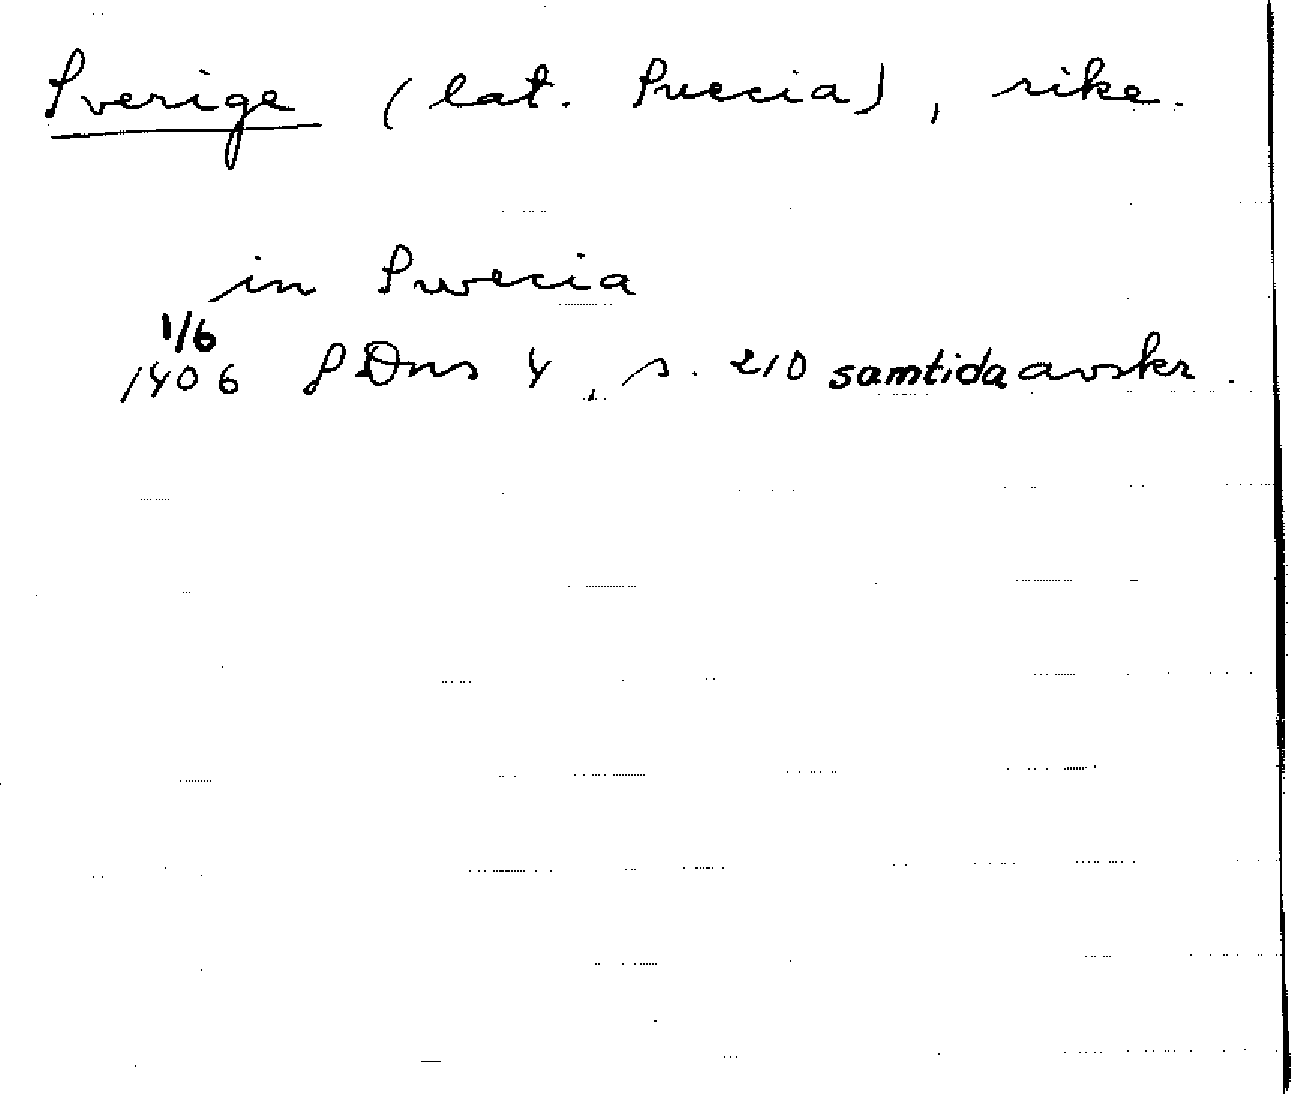 Sverige (lat. Suecia), rike.
in Swecia
1/6
1406 SDns 4, s. 210 samtida avskr.